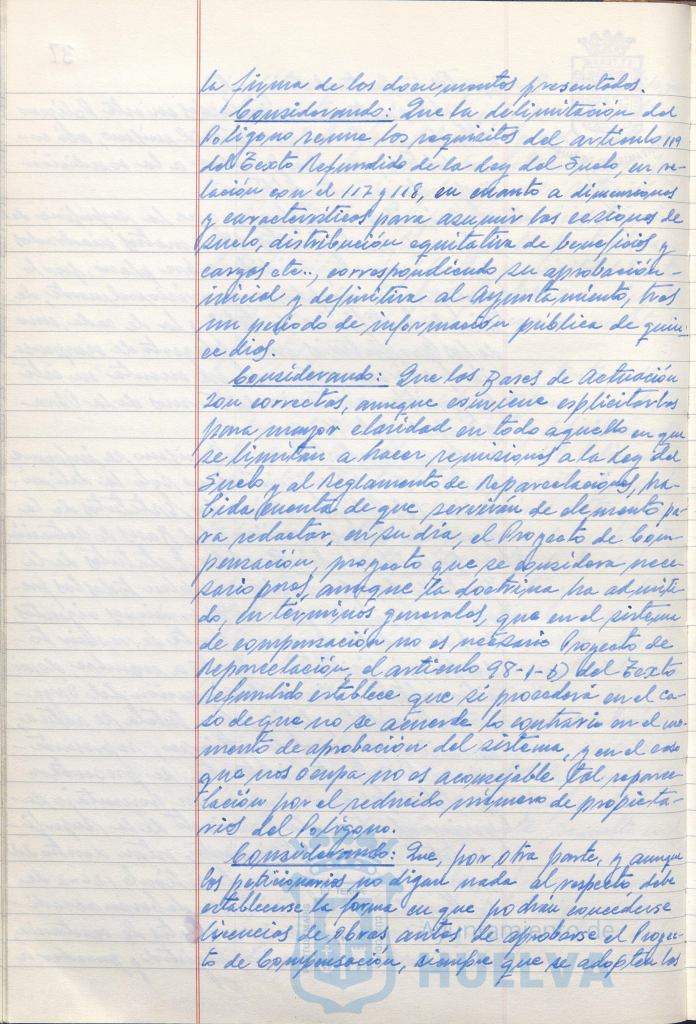 la firma de los documentos presentados.
Considerando: Que la delimitación del
Polígono reune los requisitos del artículo 119
del Texto Refundido de la Ley del Suelo, en re-
lación con el 117 y 118, en cuanto a dimensiones
y características para asumir las cesiones de
suelo, distribución equitativa de beneficios y
cargas etc.., correspondiendo su aprobación-
inicial y definitiva al Ayuntamiento, tras
un período de información pública de quin-
ce días.
Considerando: Que las Bases de Actuación
son correctas, aunque conviene explicitarlas
para mayor claridad en todo aquello en que
se limitan a hacer remisiones a la Ley del
Suelo y al Reglamento de Reparcelaciones, ha-
bida cuenta de que servirán de elemento pa-
ra redactar, en su día, el Proyecto de Com-
pensación, proyecto que se considera nece-
sario pues, aunque la doctrina ha admiti-
do, en términos generales, que en el sistema
de compensación no es necesario Proyecto de
Reparcelación, el artículo 98-1-b) del Texto
Refundido establece que sí procederá en el ca-
so de que no se acuerde lo contrario en el mo-
mento de aprobación del sistema, y en el caso
que nos ocupa no es aconsejable tal reparce-
lación por el reducido número de propieta-
rios del Polígono.
Considerando: Que, por otra parte, y aunque
los peticionarios no digan nada al respecto, debe
establecerse la forma en que podrán concederse
licencias de obras antes de aprobarse el Proyec-
to de Compensación, siempre que se adopten las
Ayuntamiento de
HUELVA